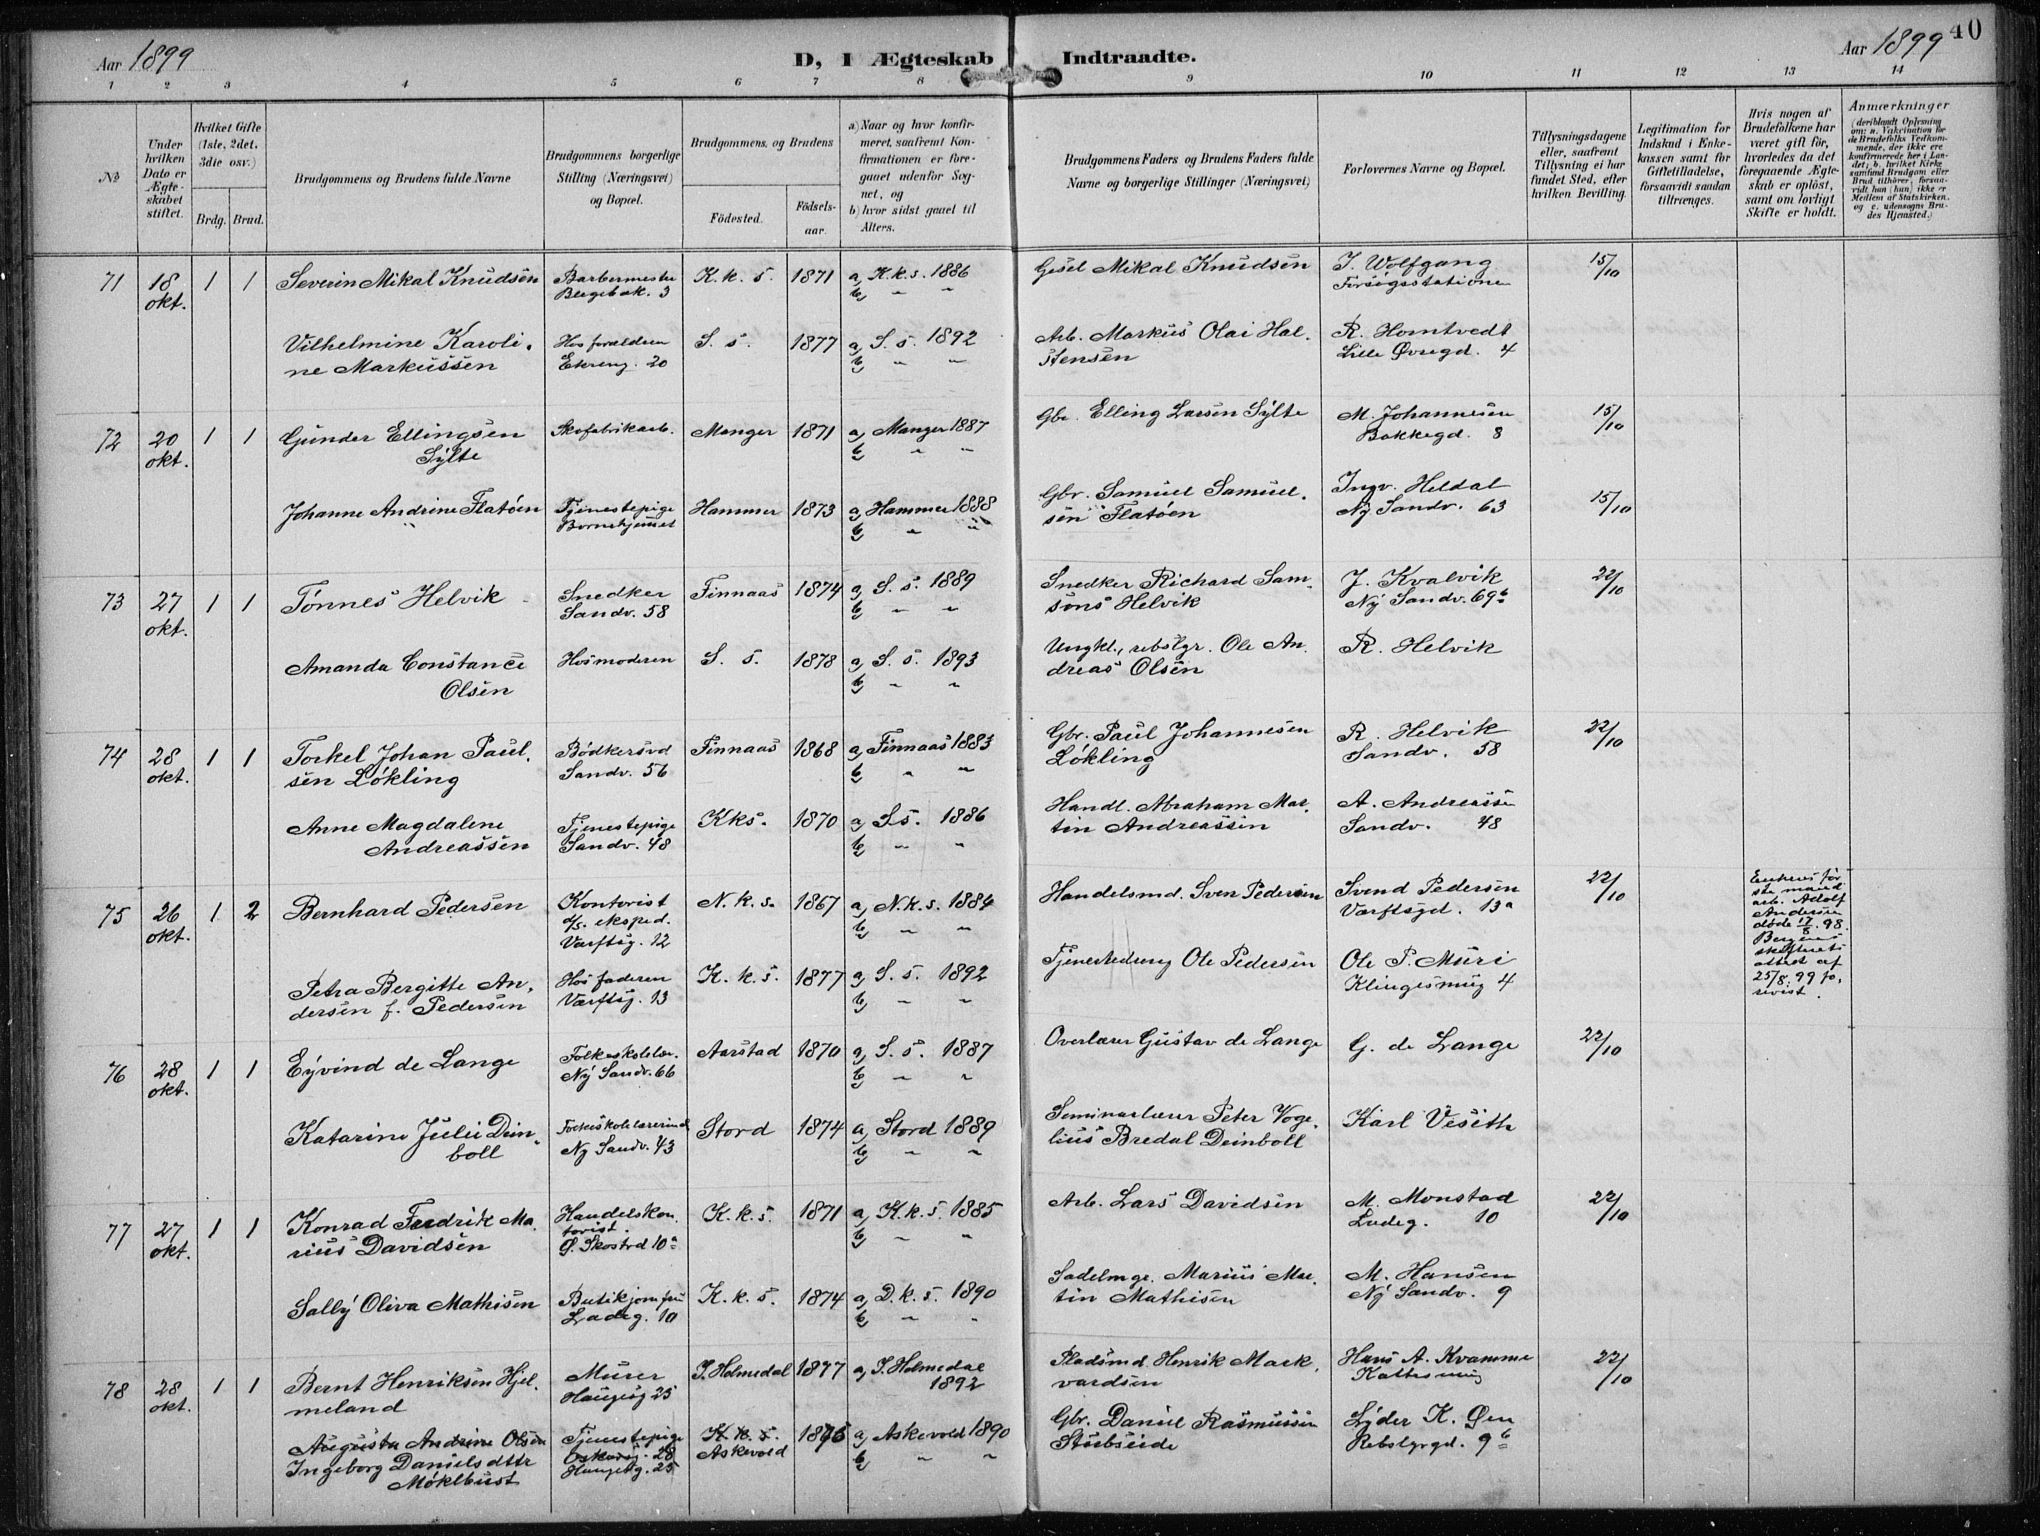 Aar 1899
D, I Ægteskab Indtraadte.
Aar 1899
40
1 2 3 4 5 6 7 8 9 10 11 12 13 14
№
Under hvilken Dato er Ægteskabet stiftet.
Hvilket Gifte (1ste, 2det, 3die osv.)
Brdg. Brud.
Brudgommens og Brudens fulde Navne
Brudgommens borgerlige Stilling (Næringsvei) og Bopæl.
Brudgommens og Brudens
Fødested.
Fødselsaar.
a) Naar og hvor konfirmeret, saafremt Konfirmationen er foregaaet udenfor Sognet, og
b) hvor sidst gaaet til Alters.
Brudgommens Faders og Brudens Faders fulde Navne og borgerlige Stillinger (Næringsvei)
Forlovernes Navne og Bopæl.
Tillysningsdagene eller, saafremt Tillysning ei har fundet Sted, efter hvilken Bevilling.
Legitimation for Indskud i Enkekassen samt for Giftetilladelse, forsaavidt saadan tiltrænges.
Hvis nogen af Brudefolkene har været gift før, hvorledes da det foregaaende Ægteskab er opløst, samt om lovligt Skifte er holdt.
Anmærkninger
(deriblandt Oplysning om: a. Vakcination for de Brudefolks Vedkommende, der ikke ere konfirmerede her i Landet; b. hvilket Kirkesamfund Brudgom eller Brud tilhører, forsaavidt han (hun) ikke er Medlem af Statskirken, og c. udensogns Brudes Hjemsted.)
71 18 okt. 1 1 Severin Mikal Knudsen Barbermester 3 K. k. s. 1871 a, K. k. s. 1886 b, " " Mikal Knudsen J. Wolfgang 15/10
Vilhelmine Karoline Markussen Hos forældren 20 S. s. 1877 a, S. s. 1892 b, " " Arb. Markus Olai Halstensen R. Homtvedt Lille Øvregd. 4
72 20 okt. 1 1 Gunder Ellingsen Sylte Skofabrikarb. Manger 1871 a, Manger 1887 b, " " Gbr. Elling Larsen Sylte M. Johannesen Bakkegd. 8 15/10
Johanne Andrine Flatøen Tjenestepige Hammer 1873 a, Hammer 1888 b, " " Gbr. Samuel Samuelsen Flatøen Ingv. Heldal Ny Sandv. 63 15/10
73 27 okt. 1 1 Tønnes Helvik Snedker Sandv. 58 Finnaas 1874 a, S. s. 1889 b, " " Snedker Richard Samsons Helvik J. Kvalvik Ny Sandv. 69b 22/10
Amanda Constance Olsen Hos moderen S. s. 1878 a, S. s. 1893 b, " " Ungkl., rebslgr. Ole Andreas Olsen R. Helvik
74 28 okt. 1 1 Torkel Johan Paulsen Løkling Bødkersvd Sandv. 56 Finnaas 1868 a, Finnaas 1883 b, " " Gbr. Paul Johannesen Løkling R. Helvik Sandv. 58 22/10
Anne Magdalene Andreassen Tjenestepige Sandv. 48 Kks. 1870 a, S s. 1886 b, " " Handl. Abraham Martin Andreassen A. Andreassen Sandv. 48
75 26 okt. 1 2 Bernhard Pedersen Kontorist d/s. eksped. Værftsg. 12 N. k. s. 1867 a, N. k. s. 1884 b, " " Handelsmd. Sven Pedersen Svend Pedersen Værftsgd. 13a 22/10
Petra Bergitte Andersen f. Pedersen Hos faderen Værftsg. 13 K. k. s. 1877 a, S. s. 1892 b, " " Ole Pedersen Ole P. Muri Klingesmug 4
arb. Adolf Andersen døde 98. Bergens attest af 25/8. 99
76 28 okt. 1 1 Eyvind de Lange Folkeskolelær. Ny Sandv. 66 Aarstad 1870 a, S. s. 1887 b, " " Overlærer Gustav de Lange G. de Lange 22/10
Katarine Julie Deinboll Folkeskolelærerinde Ny Sandv. 43 Stord 1874 a, Stord 1889 b, " " Seminarlærer Peter Vogelius Bredal Deinboll Karl
77 27 okt. 1 1 Konrad Fredrik Marius Davidsen Handelskontorist. Ø. Skostrd 10a K. k. s. 1871 a, K. k. s. 1885 b, " " Arb. Lars Davidsen M. Monstad Ladeg. 10 22/10
Sally Oliva Mathisen Butikjomfru Ladeg. 10 K. k. s. 1874 a, D. k. s. 1890 b, " " Sadelmge. Marius Martin Mathisen M. Hansen Ny Sandv. 9
78 28 okt. 1 1 Bernt Henriksen Hjelmeland Murer Haugeg 25 I. Holmedal 1877 a, I. Holmedal 1892 Pladsmd. Henrik Markvardsen Hans A. Kvamme 22/10
Augusta Andrine Olsen Ingeborg Danielsdttr Møklebust Tjenestepige 28 Haugeg. 25 K. k. s. Askevold 1876 a, Askevold 1890 b, " " Gbr. Daniel Rasmussen Stubseide Lyder K. Øen Rebslgrgd. 9b